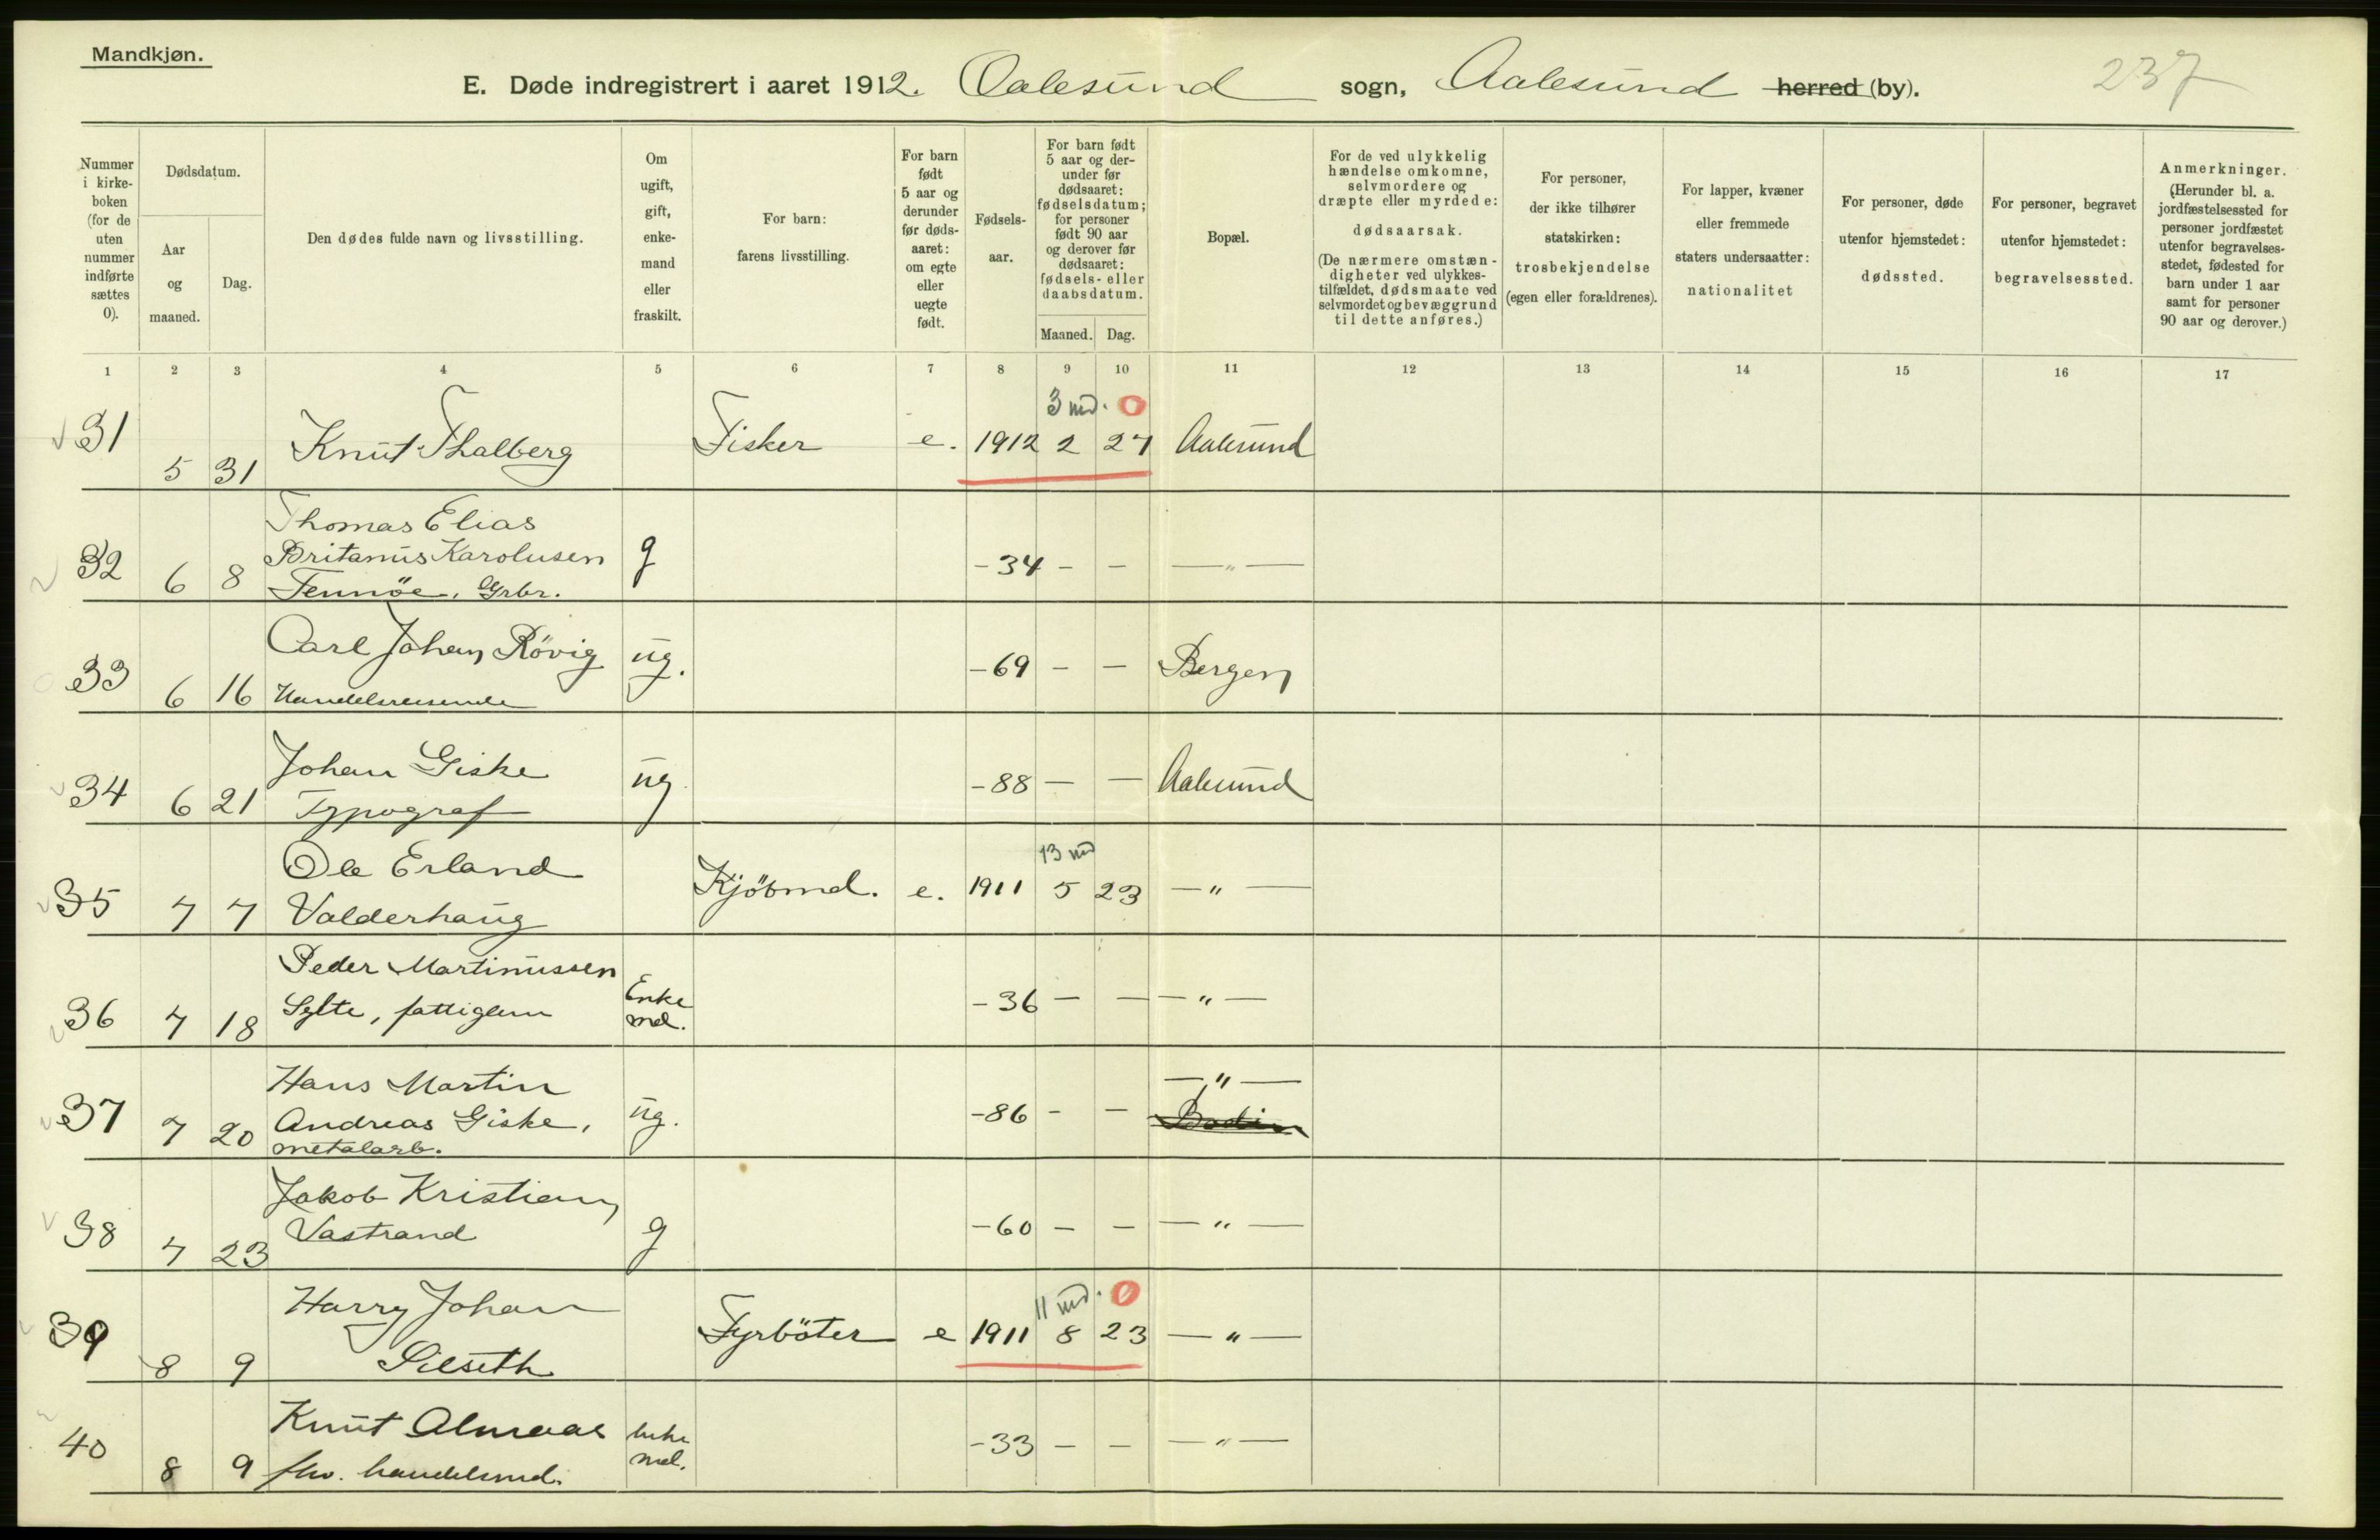 Mandkjøn.
E. Døde indregistrert i aaret 1912. Aalesund sogn, Aalesund herred (by).
237
Nummer i kirke-boken (for de uten nummer indførte sættes 0).
Dødsdatum.
Aar og maaned.
Dag.
Den dødes fulde navn og livsstilling.
Om ugift, gift, enke-mand eller fraskilt.
For barn: farens livsstilling.
For barn født 5 aar og derunder før døds-aaret: om egte eller uegte født.
Fødsels-aar.
For barn født 5 aar og der-under før dødsaaret: fødselsdatum; for personer født 90 aar og derover før dødsaaret: fødsels- eller daabsdatum.
Maaned. Dag.
Bopæl.
For de ved ulykkelig hændelse omkomne, selvmordere og dræpte eller myrdede: dødsaarsak. (De nærmere omstæn-digheter ved ulykkes-tilfældet, dødsmaate ved selvmordet og bevæggrund til dette anføres.)
For personer, der ikke tilhører statskirken: trosbekjendelse (egen eller forældrenes).
For lapper, kvæner eller fremmede staters undersaatter: nationalitet
For personer, døde utenfor hjemstedet: dødssted.
For personer, begravet utenfor hjemstedet: begravelsessted.
Anmerkninger. (Herunder bl. a. jordfæstelsessted for personer jordfæstet utenfor begravelses-stedet, fødested for barn under 1 aar samt for personer 90 aar og derover.)
1 2 3 4 5 6 7 8 9 10 11 12 13 14 15 16 17
3 md. 0
31 5 31 Knut Thalberg Fisker e. 1912 2 27 Aalesund
Thomas Elias
32 6 8 Britanus Karolusen g -34 - - -"-
Tennöe, Grbr.
33 6 16 Carl Johan Rövig ug. -69 - - Bergen
Handelsreisende
34 6 21 Johan Giske ug -88 - - Aalesund
Typograf
13 md
Ole Erland
35 7 7 Valderhaug Kjöbmd. e. 1911 5 23 -"-
Peder Martinussen
36 7 18 Sylte, fattiglem Enke md. -36 - - -"-
Hans Martin -"-
37 7 20 Andreas Giske, ug. -86 - -
metalarb.
Jakob Kristian
38 7 23 Vastrand g -60 - - -"-
11 md. 0
Harry Johan
39 8 9 Silseth Fyrböter e 1911 8 23 -"-
Knut Almaas
40 8 9 fhv. handelsmd. enke md. -33 - - -"-